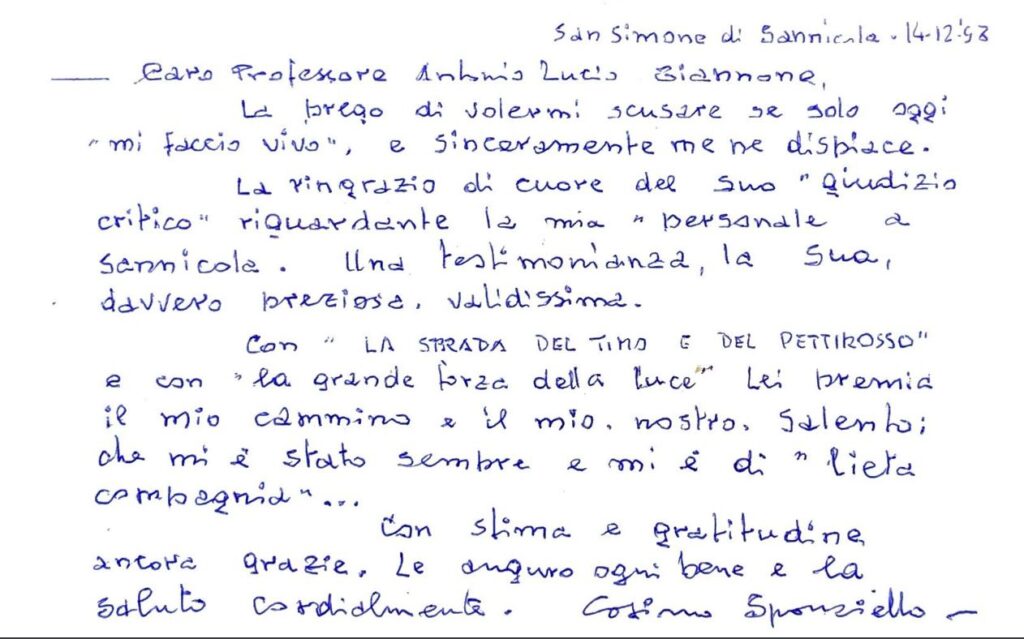 San Simone di Sannicola. 14-12-'98
Caro Professore Antonio Lucio Giannone,
La prego di volermi scusare se solo oggi
"mi faccio vivo", e sinceramente me ne dispiace.
La ringrazio di cuore del suo "giudizio
critico" riguardante la mia "personale a
Sannicola. Una testimonianza, la Sua,
davvero preziosa, validissima.
Con "LA STRADA DEL TIMO E DEL PETTIROSSO"
e con "la grande forza della luce" Lei premia
il mio cammino e il mio, nostro, Salento;
che mi è stato sempre e mi è di "lieta
compagnia"...
Con stima e gratitudine
ancora grazie. Le auguro ogni bene e la
saluto cordialmente. Cosimo Sponziello —